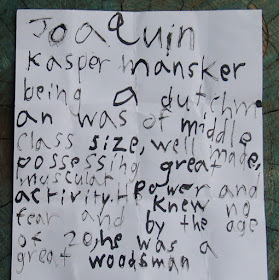 Joaquin
Kasper mansker
being a dutchm
an was of middle
class size, well made,
possessing great
muscular power and
activity. He knew no
fear and by the age
of 20, he was a
great woodsman